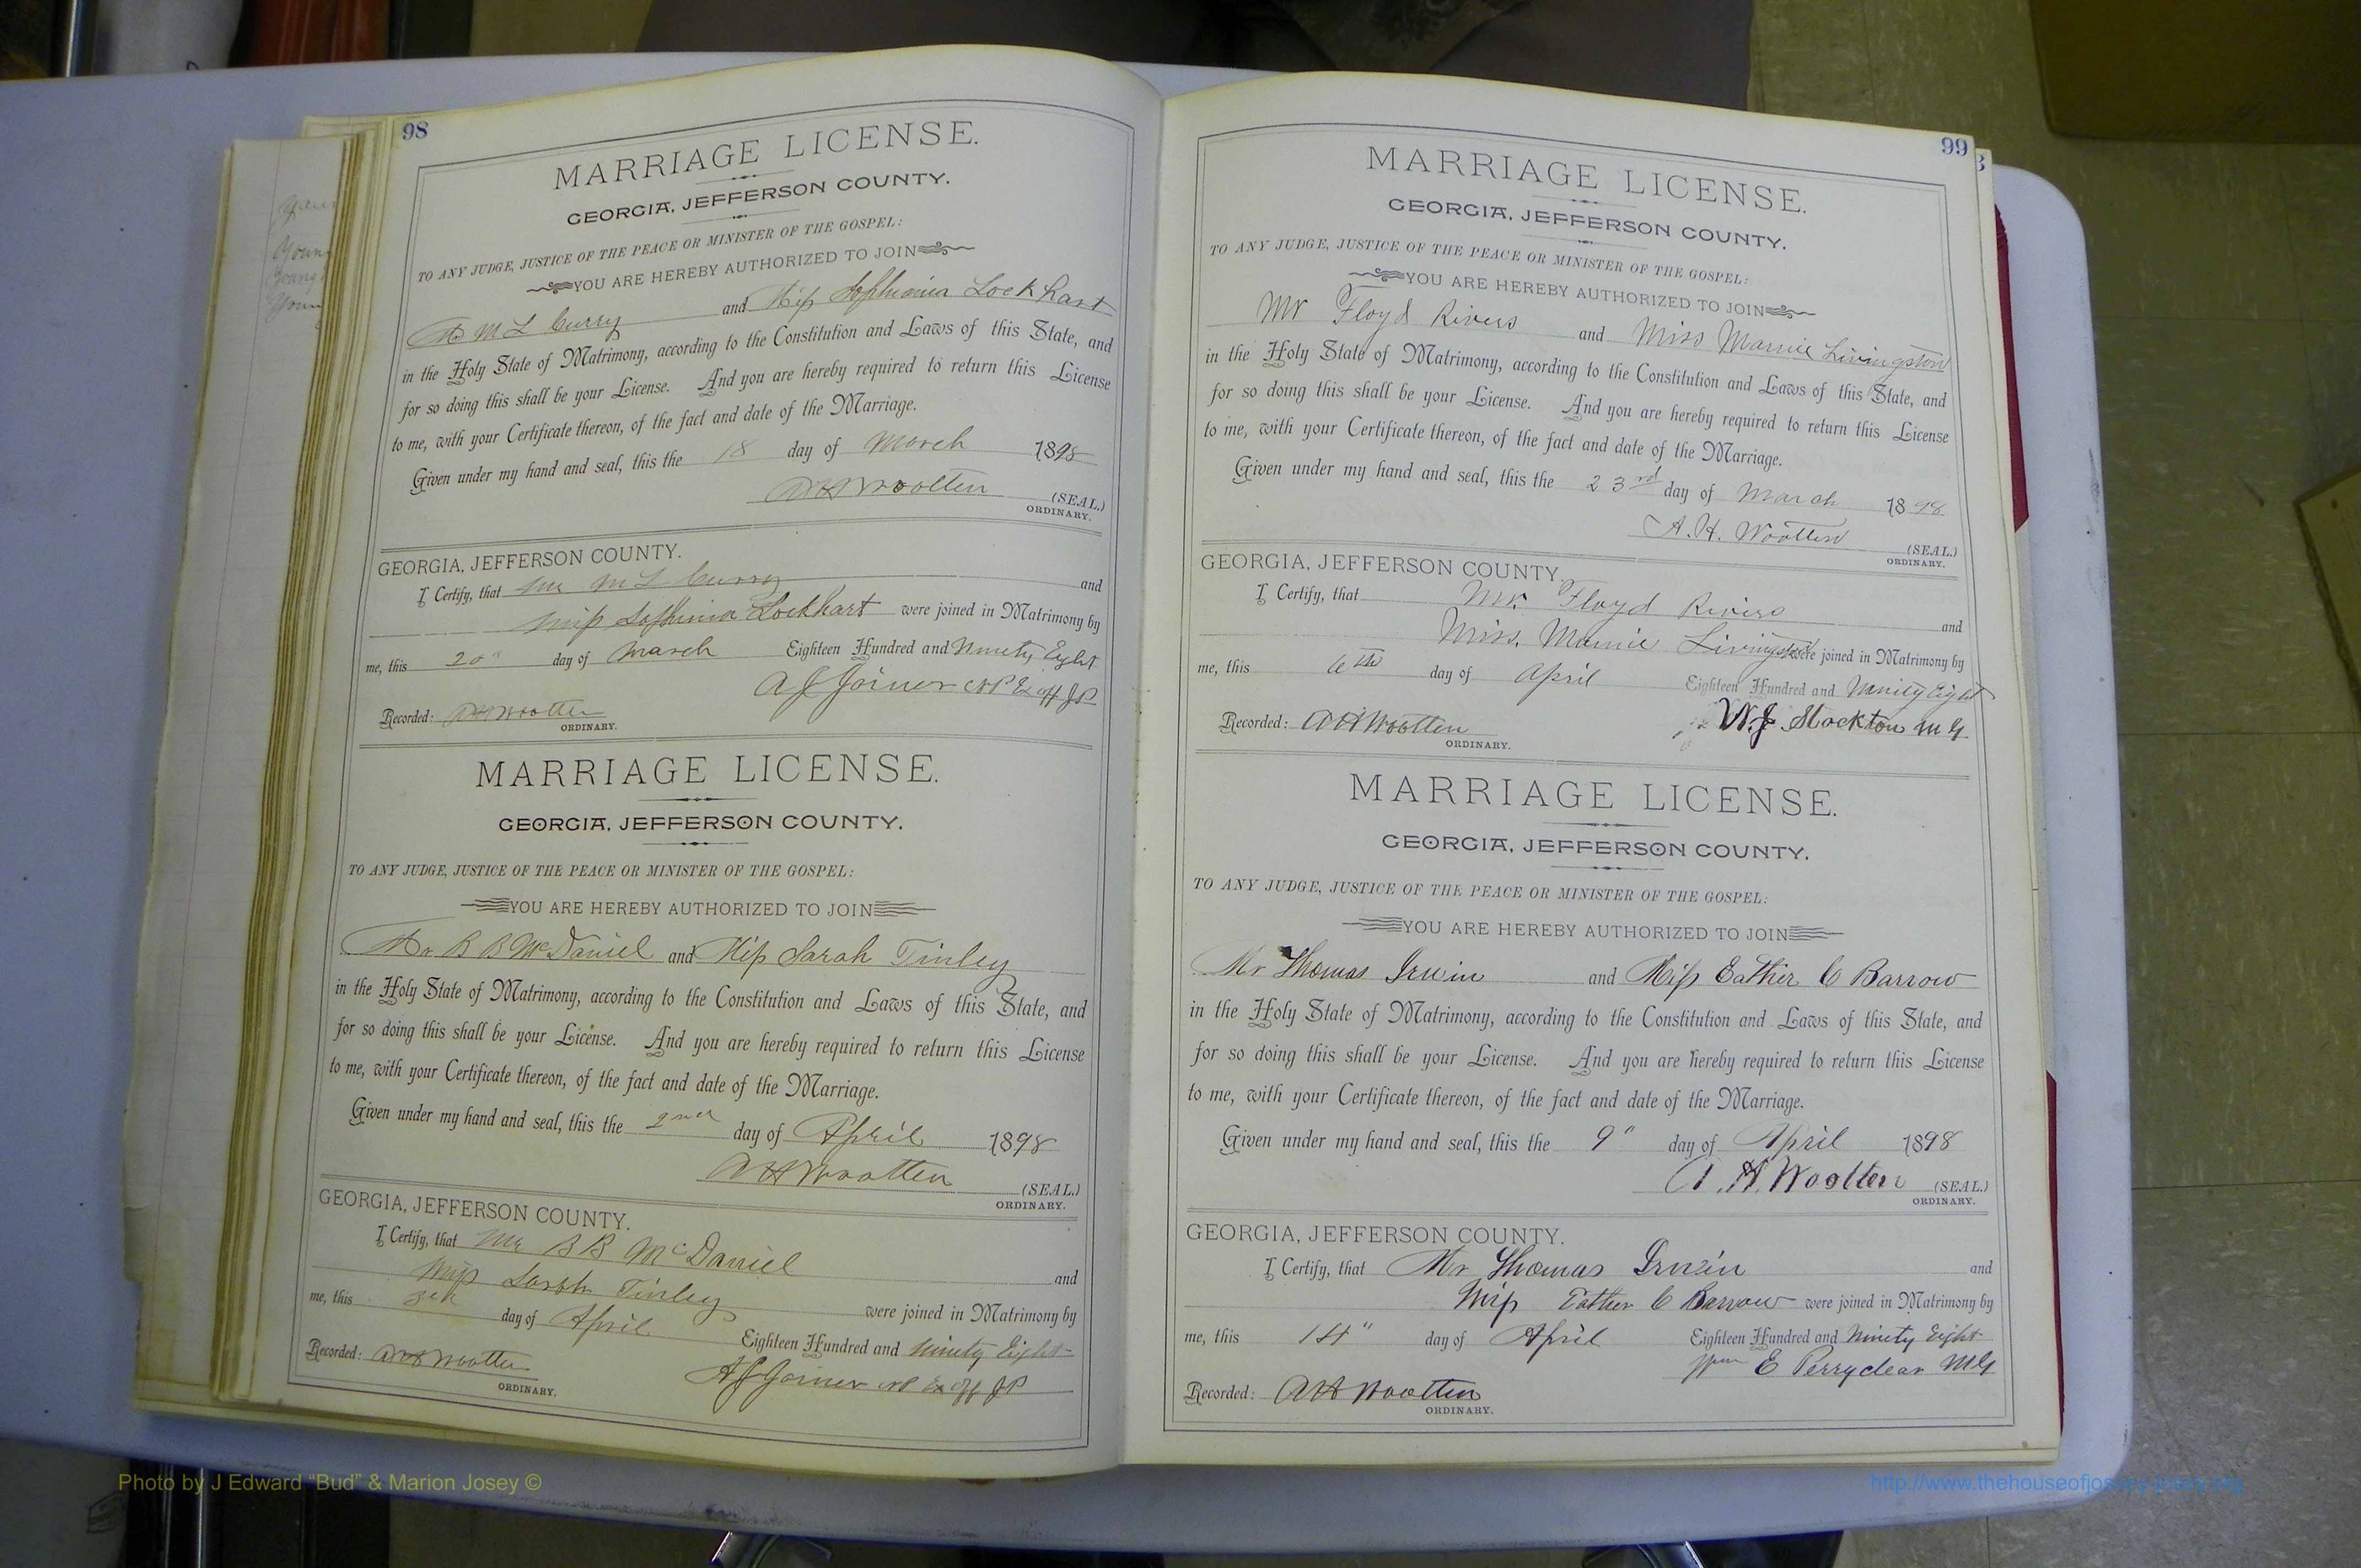 98
MARRIAGE LICENSE.
GEORGIA, JEFFERSON COUNTY.
TO ANY JUDGE, JUSTICE OF THE PEACE OR MINISTER OF THE GOSPEL:
YOU ARE HEREBY AUTHORIZED TO JOIN
M L Curry and Miss Lockhart
in the Holy State of Matrimony, according to the Constitution and Laws of this State, and
for so doing this shall be your License. And you are hereby required to return this License
to me, with your Certificate thereon, of the fact and date of the Marriage.
Given under my hand and seal, this the 18 day of March 1898
A H Wootten (SEAL.)
ORDINARY.
GEORGIA, JEFFERSON COUNTY.
I Certify, that Mr M L Curry and
Miss Lockhart were joined in Matrimony by
me, this 20" day of March Eighteen Hundred and Ninety Eight
A J Joiner NP Ex off JP
Recorded: A H Wootten
ORDINARY.
MARRIAGE LICENSE.
GEORGIA, JEFFERSON COUNTY.
TO ANY JUDGE, JUSTICE OF THE PEACE OR MINISTER OF THE GOSPEL:
YOU ARE HEREBY AUTHORIZED TO JOIN
Mr B B McDaniel and Miss Sarah Tinley
in the Holy State of Matrimony, according to the Constitution and Laws of this State, and
for so doing this shall be your License. And you are hereby required to return this License
to me, with your Certificate thereon, of the fact and date of the Marriage.
Given under my hand and seal, this the 2nd day of April 1898
A H Wootten (SEAL.)
ORDINARY.
GEORGIA, JEFFERSON COUNTY.
I Certify, that Mr B B McDaniel and
Miss Sarah Tinley were joined in Matrimony by
me, this day of April Eighteen Hundred and Ninety Eight
A J Joiner NP Ex off JP
Recorded: A H Wootten
ORDINARY.
99
MARRIAGE LICENSE.
GEORGIA, JEFFERSON COUNTY.
TO ANY JUDGE, JUSTICE OF THE PEACE OR MINISTER OF THE GOSPEL:
YOU ARE HEREBY AUTHORIZED TO JOIN
Mr Floyd Rivers and Miss Mamie Livingston
in the Holy State of Matrimony, according to the Constitution and Laws of this State, and
for so doing this shall be your License. And you are hereby required to return this License
to me, with your Certificate thereon, of the fact and date of the Marriage.
Given under my hand and seal, this the 23rd day of March 1898
A. H. Wootten (SEAL.)
ORDINARY.
GEORGIA, JEFFERSON COUNTY.
I Certify, that Mr. Floyd Rivers and
Miss. Mamie Livingston were joined in Matrimony by
me, this 6th day of April Eighteen Hundred and Ninety Eight
W. J. Stockton M G
Recorded: A H Wootten
ORDINARY.
MARRIAGE LICENSE.
GEORGIA, JEFFERSON COUNTY.
TO ANY JUDGE, JUSTICE OF THE PEACE OR MINISTER OF THE GOSPEL:
YOU ARE HEREBY AUTHORIZED TO JOIN
Mr Thomas Irwin and Miss Eather C Barrow
in the Holy State of Matrimony, according to the Constitution and Laws of this State, and
for so doing this shall be your License. And you are hereby required to return this License
to me, with your Certificate thereon, of the fact and date of the Marriage.
Given under my hand and seal, this the 9" day of April 1898
A. H. Wootten (SEAL.)
ORDINARY.
GEORGIA, JEFFERSON COUNTY.
I Certify, that Mr Thomas Irwin and
Miss Eather C Barrow were joined in Matrimony by
me, this 14" day of April Eighteen Hundred and Ninety Eight
Wm E Perryclear MG
Recorded: A H Wootten
ORDINARY.
Photo by J Edward “Bud” & Marion Josey ©